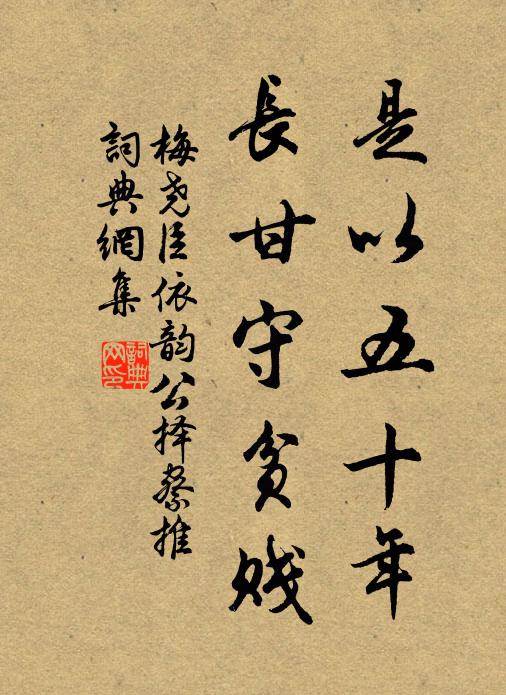 是以五十年
長甘守貧賤
梅尧臣依韵公择察推
詞典網集
詞典網印